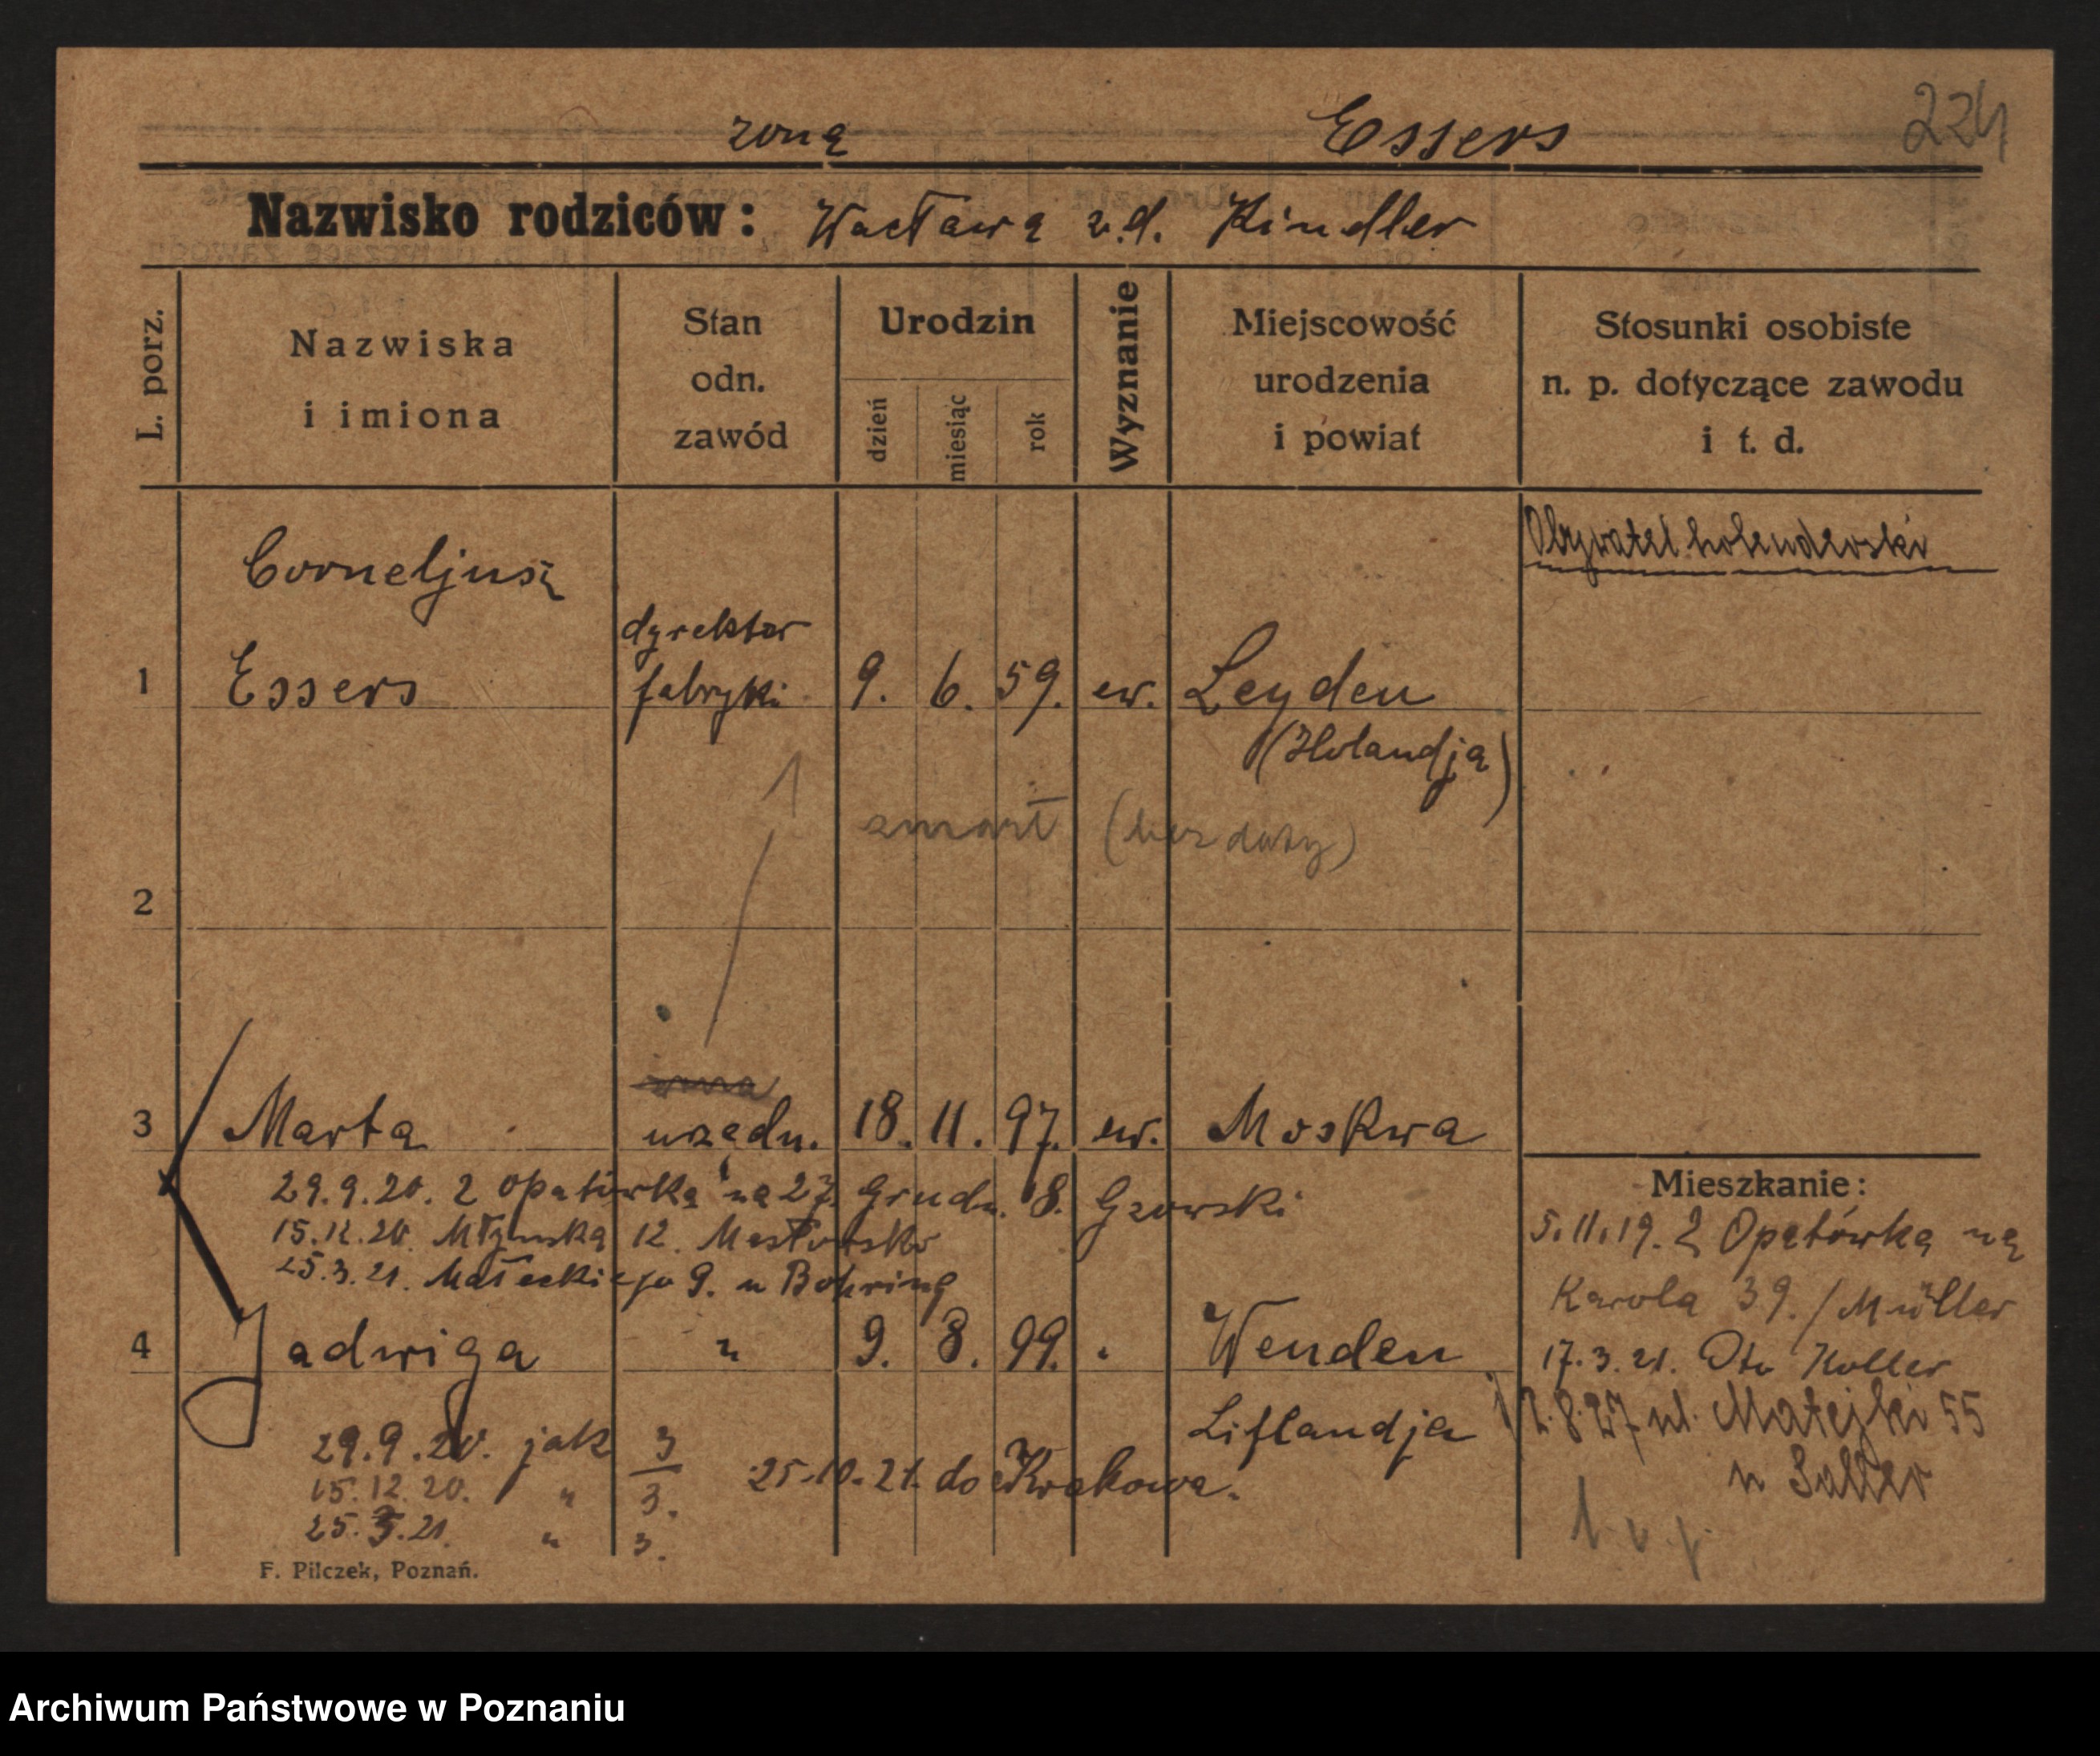 224
żona Essers
Nazwisko rodziców: Wacława z.d. Kindler
L. porz.
Nazwiska i imiona
Stan odn. zawód
Urodzin
dzień
miesiąc
rok
Wyznanie
Miejscowość urodzenia i powiat
Stosunki osobiste n. p. dotyczące zawodu i t. d.
Obywatel holenderski
Corneljusz
dyrektor
1 Essers fabryki 9. 6. 59. ew. Leyden
(Holandja)
1 zmarł (bez daty)
2
3 Marta urzędn. 18. 11. 97. ew. Moskwa
29.9.20. z Opatówka na 27 Grudn. 8. Gzowski
15.12.20. Młyńska 12.
25.3.21. Małeckiego 9. u Bohring
4 Jadwiga " 9. 8. 99. " Wenden
Liflandja
29.9.20. jak 3
15.12.20. " 3.
25.3.21. " 3.
25.10.21. do Krakowa.
Mieszkanie:
5.11.19. z Opatówka na
Karola 39. / Müller
17.3.21. Oto Koller
2.8.27 ul. Matejki 55
u
F. Pilczek, Poznań.
Archiwum Państwowe w Poznaniu